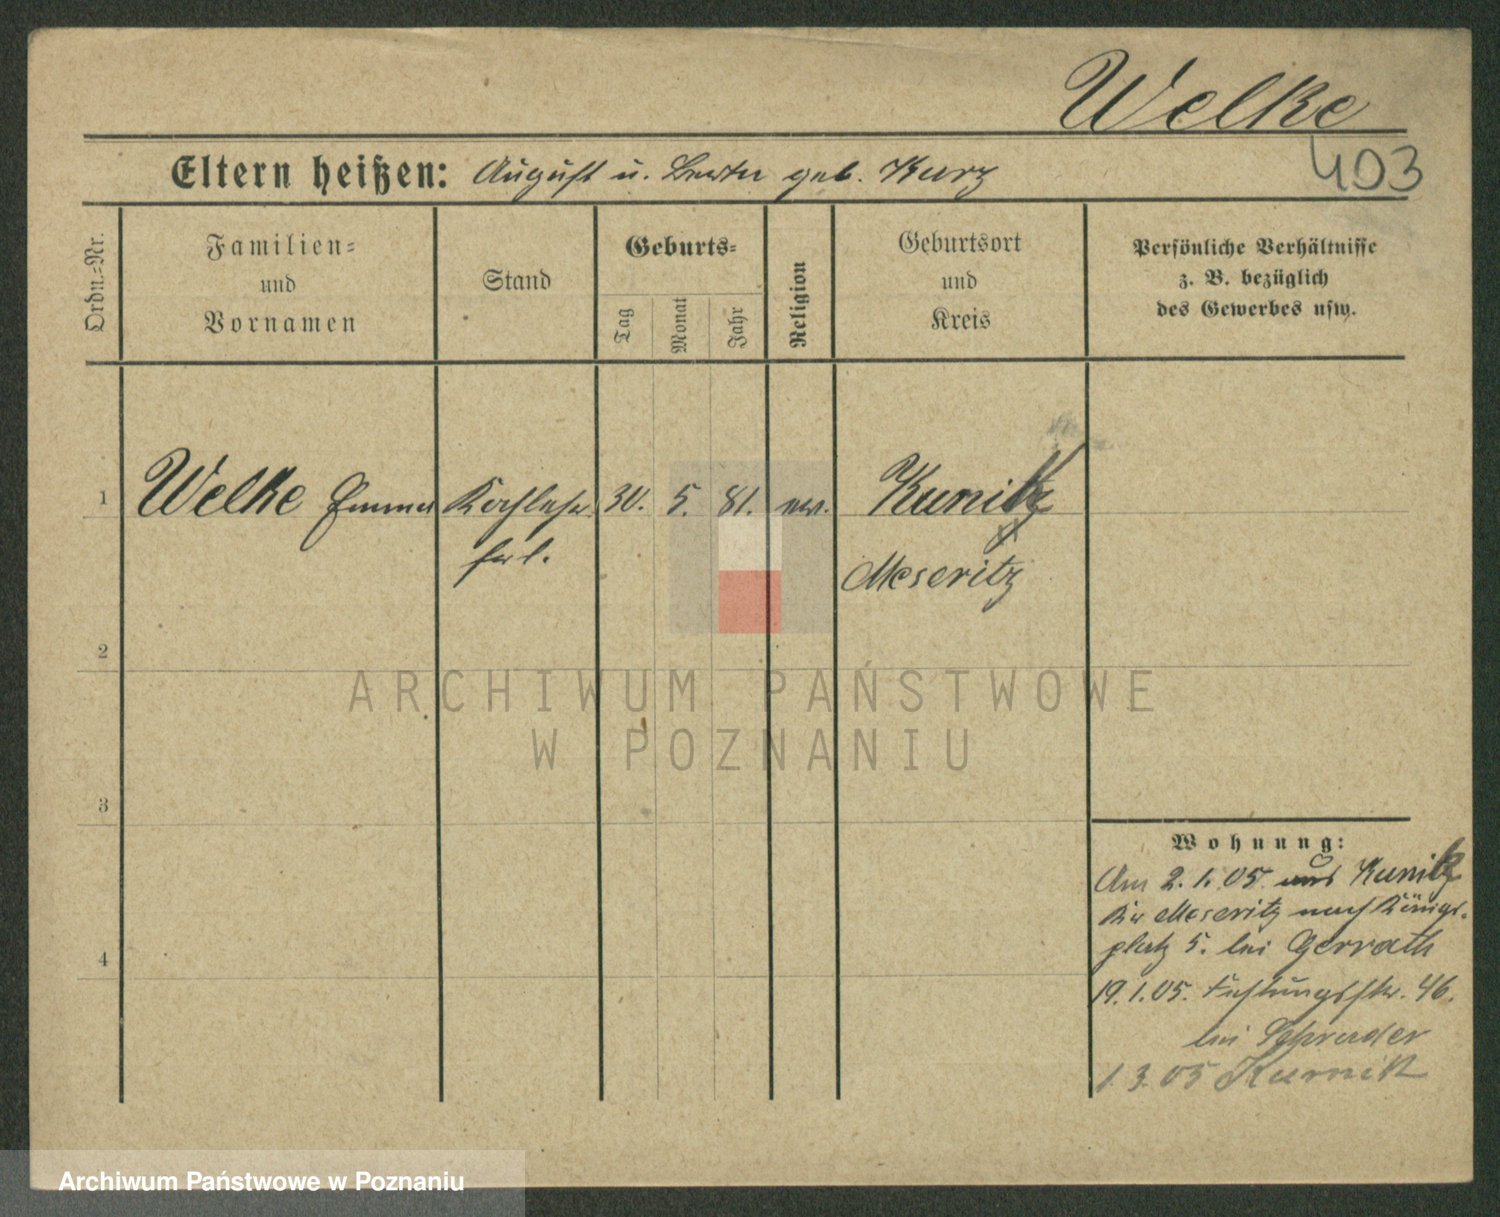 Welke
403
Eltern heißen: August u. Beate geb. Kurz
Ordn.=Nr.
Familien=
und
Vornamen
Stand
Geburts=
Tag
Monat
Jahr
Religion
Geburtsort
und
Kreis
Persönliche Verhältnisse
z. B. bezüglich
des Gewerbes usw.
1
Welke Emma
30. 5. 81. ev.
Meseritz
2
ARCHIWUM PAŃSTWOWE
W POZNANIU
3
Wohnung:
Am 2.1.05. aus
Kr Meseritz nach Königs-
platz 5. bei Gerrath
4
19.1.05. 46.
bei Schrader
1.3.05 Kurnik
Archiwum Państwowe w Poznaniu